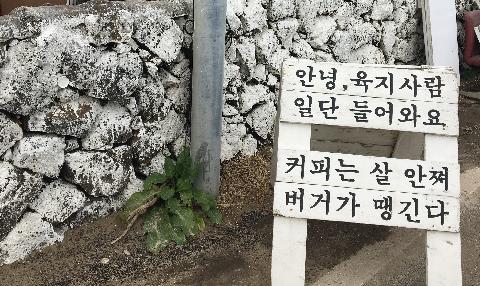 안녕, 육지사람
일단 들어와요
커피는 살 안쪄
버거가 땡긴다